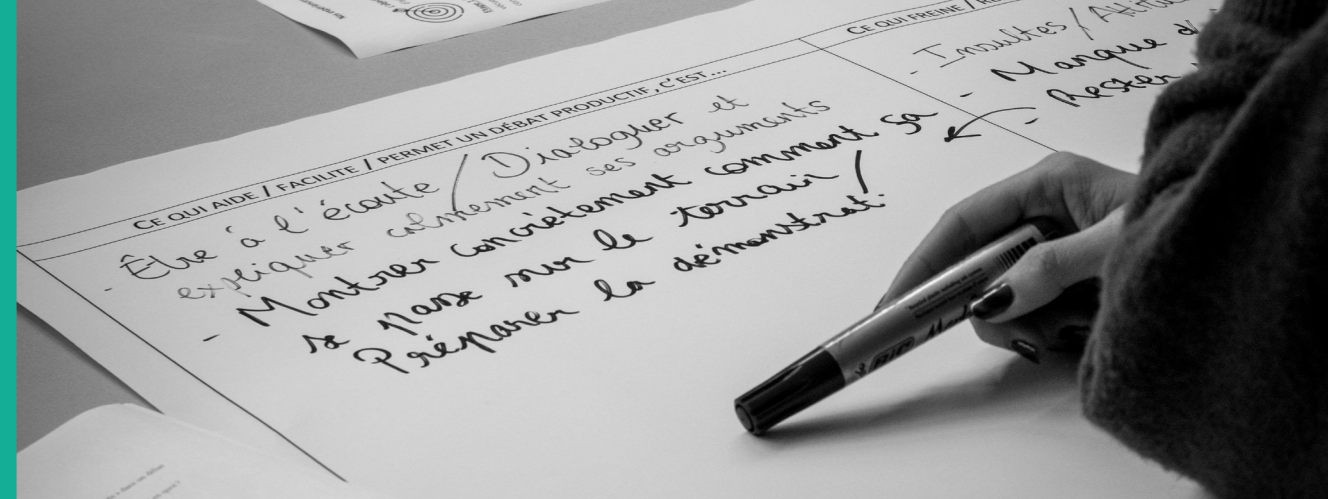 CE QUI AIDE / FACILITE / PERMET UN DÉBAT PRODUCTIF, C'EST...
- Être à l'écoute / Dialoguer et
expliquer calmement ses arguments
- Montrer concrètement comment sa
se passe sur le terrain /
Préparer la démonstrat°
CE QUI FREINE /
- Insultes /
- Manque
- Rester
BIC